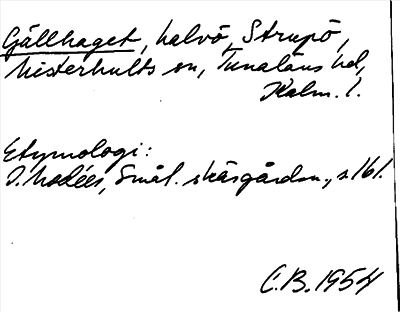 Gjällhaget, halvö, Strupö,
Misterhults sn, Tunaläns hd,
Kalm. l.
Etymologi:
I. Modéer, Smål. skärgårdsn., s. 161.
C.B. 1954